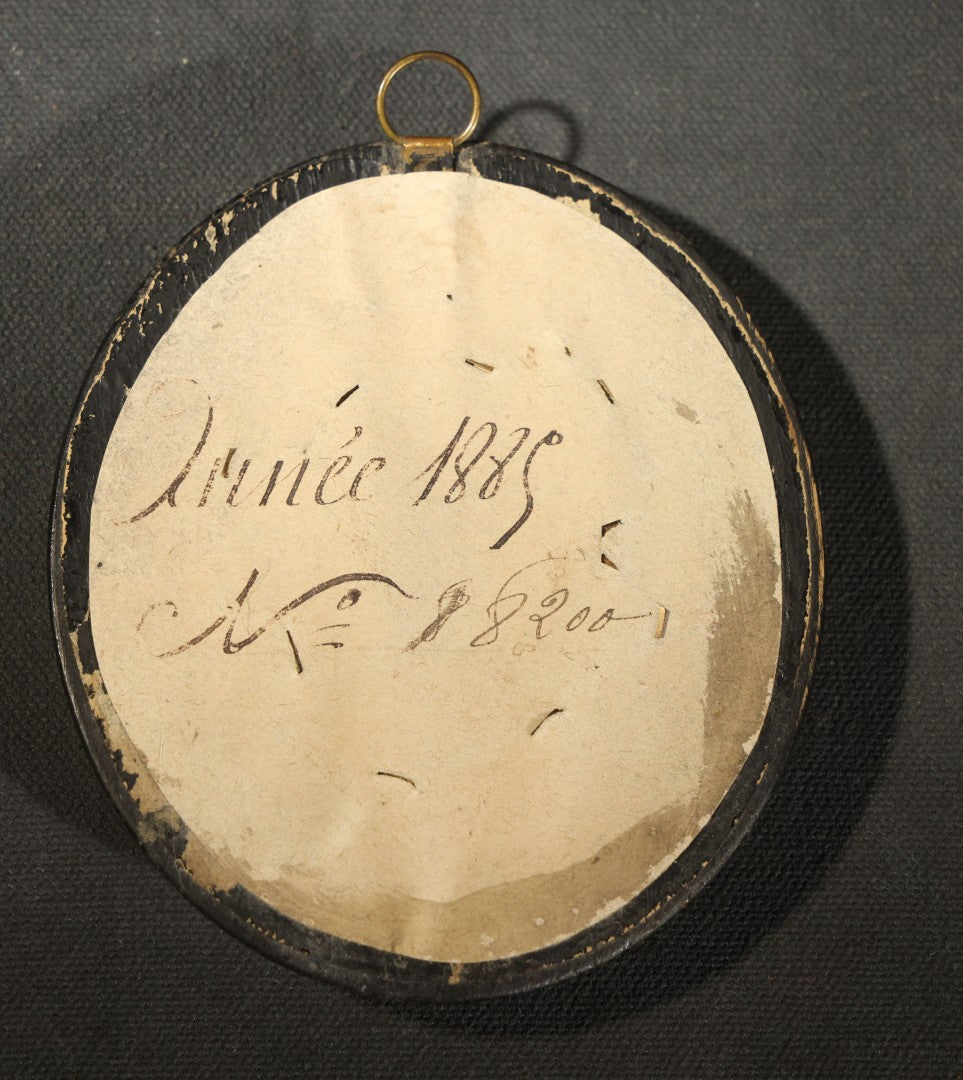 Année 1885
No 88200